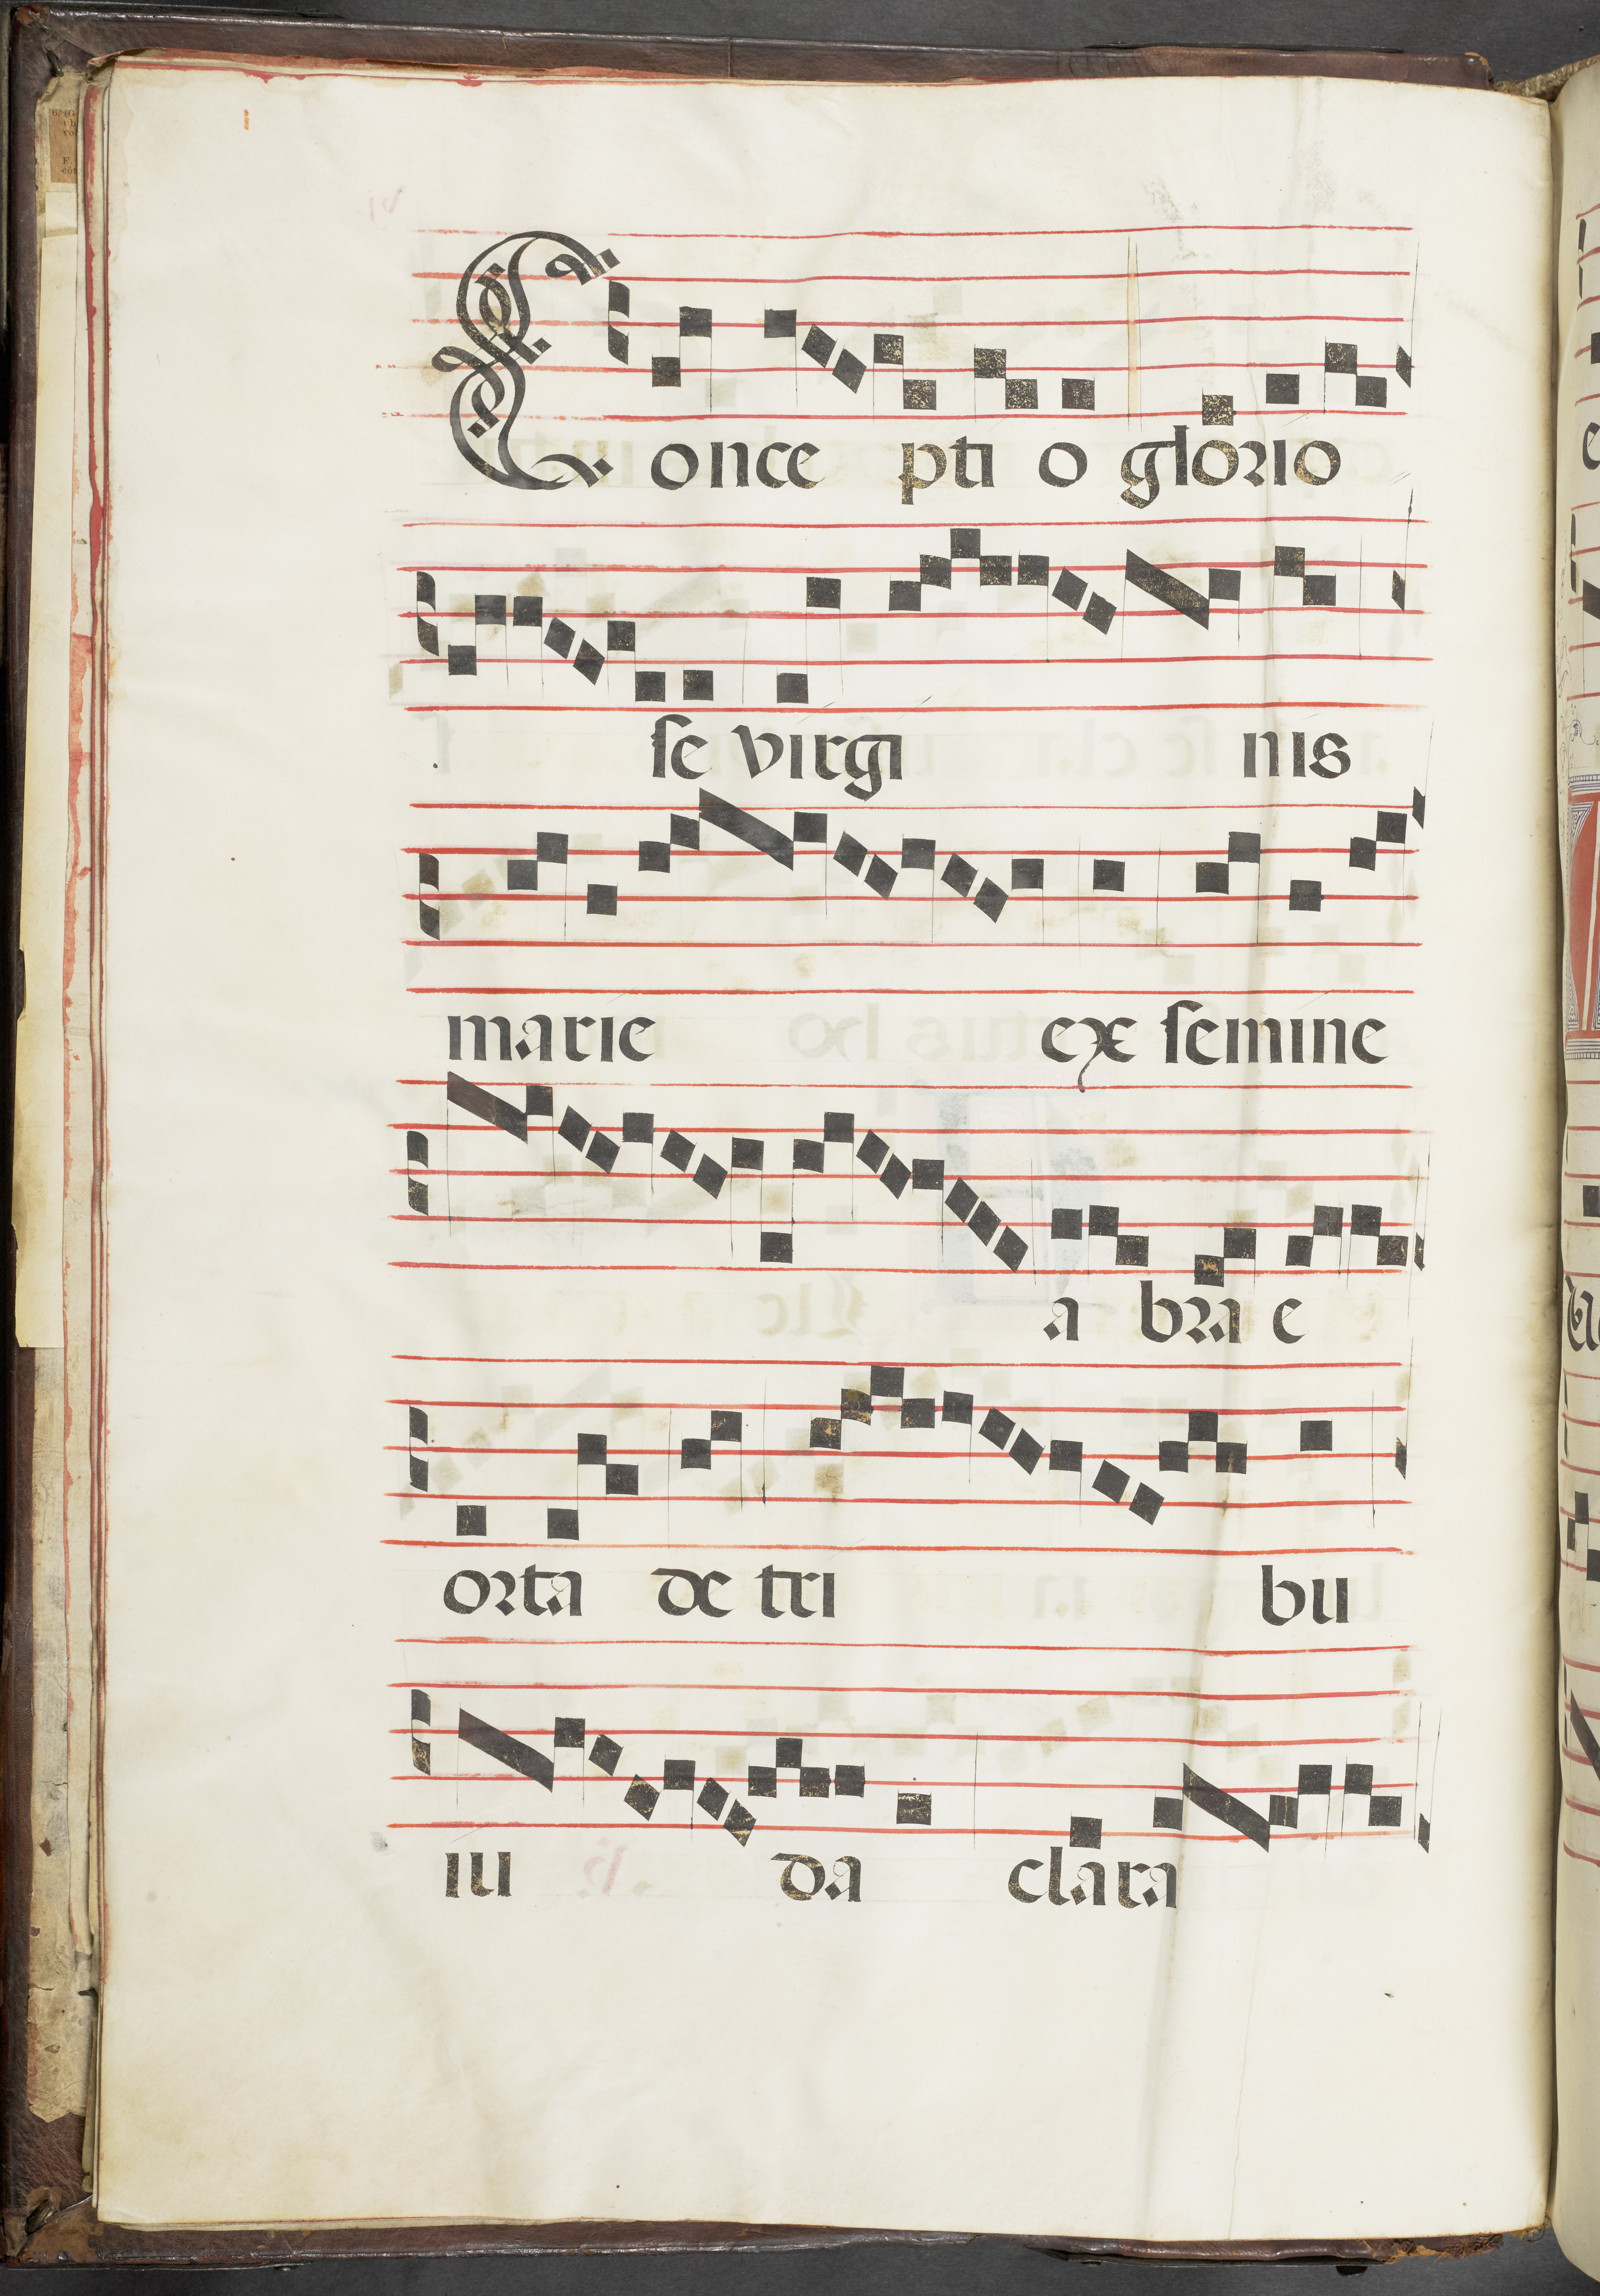 Conce pti o glorio
se virgi nis
marie ex semine
a bra e
orta de tri bu
iu da clara